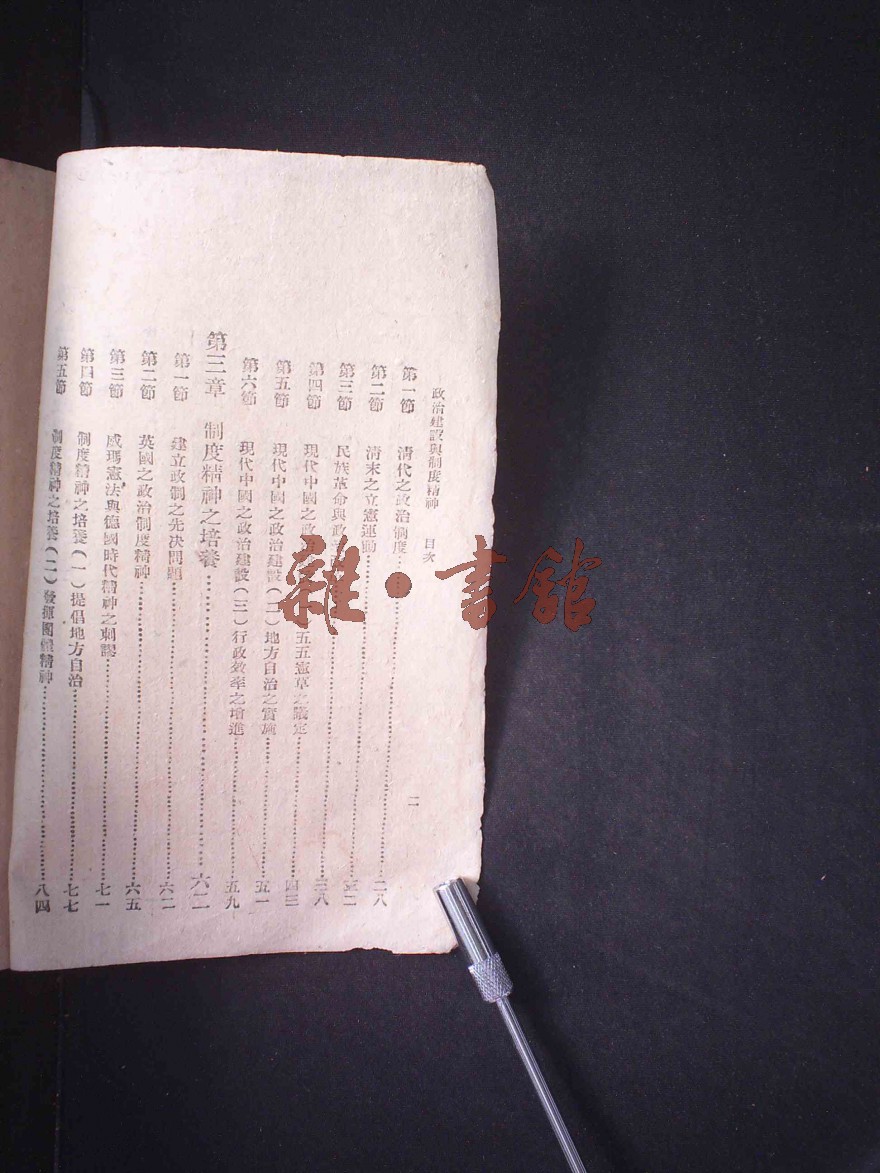 政治建設與制度精神 目次 二
第一節 清代之政治制度…………二八
第二節 清末之立憲運動…………三二
第三節 民族革命與政…………三八
第四節 現代中國之政 五五憲草之議定…………四三
第五節 現代中國之政治建設(二)地方自治之實施…………五一
第六節 現代中國之政治建設(三)行政效率之增進…………五九
第三章 制度精神之培養…………六二
第一節 建立政制之先決問題…………六二
第二節 英國之政治制度精神…………六五
第三節 威瑪憲法與德國時代精神之刺謬…………七一
第四節 制度精神之培養(一)提倡地方自治…………七七
第五節 制度精神之培養(二)發揮團體精神…………八四
雜·書館